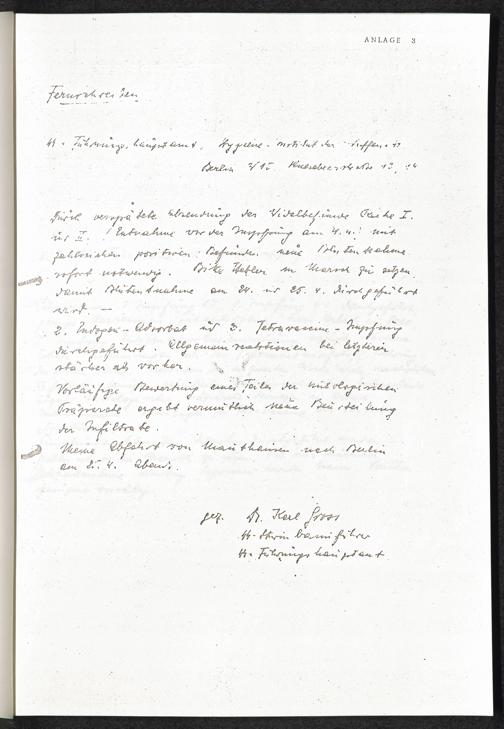 ANLAGE 3
Fernschreiben
SS-Führungshauptamt, Hygiene-Institut der Waffen-SS
Berlin
Durch verspätete Absendung der Widalbefunde Reihe I.
und II. (Entnahme vor der Impfung am 4.4.) mit
zahlreichen positiven Befunden neue Blutentnahme
sofort notwendig. Bitte in Marsch zu setzen,
damit Blutentnahme am 24. und 25. 4. durchgeführt
wird. —
2. Adsorbat und 3. Tetravaccine-Impfung
durchgeführt. Allgemeinreaktionen bei letzterer
stärker als vorher.
Vorläufige Bewertung eines Teiles der
ergibt vermutlich neue Beurteilung
der Infiltrate.
Meine Abfahrt von Mauthausen nach Berlin
am 25. 4. abends.
gez. Dr. Karl Gross
SS-Sturmbannführer
SS-Führungshauptamt